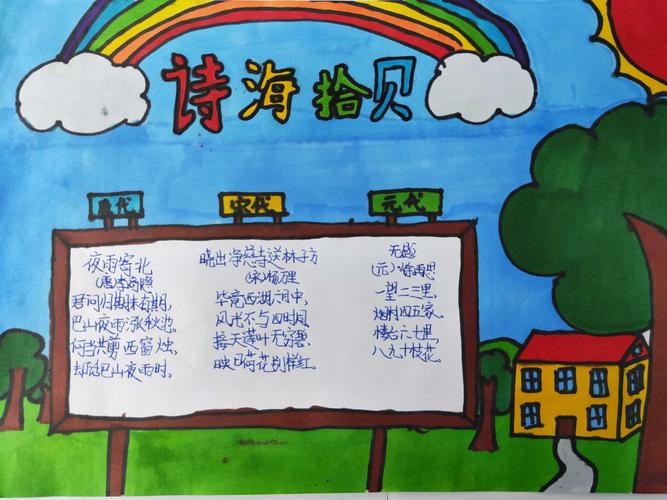 诗海拾贝
唐代
宋代
元代
夜雨寄北
(唐)李商隐
君问归期未有期,
巴山夜雨涨秋池。
何当共剪西窗烛,
却话巴山夜雨时。
晓出净慈寺送林子方
(宋)杨万里
毕竟西湖六月中,
风光不与四时同,
接天莲叶无穷碧,
映日荷花别样红。
无题
(元)徐再思
一望二三里,
烟村四五家,
楼台六七里,
八九十枝花。